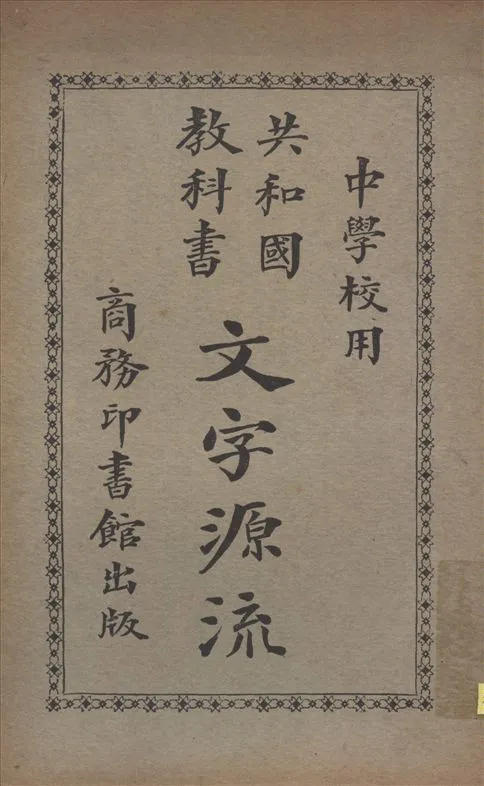 中學校用
共和國
教科書
文字源流
商務印書館出版